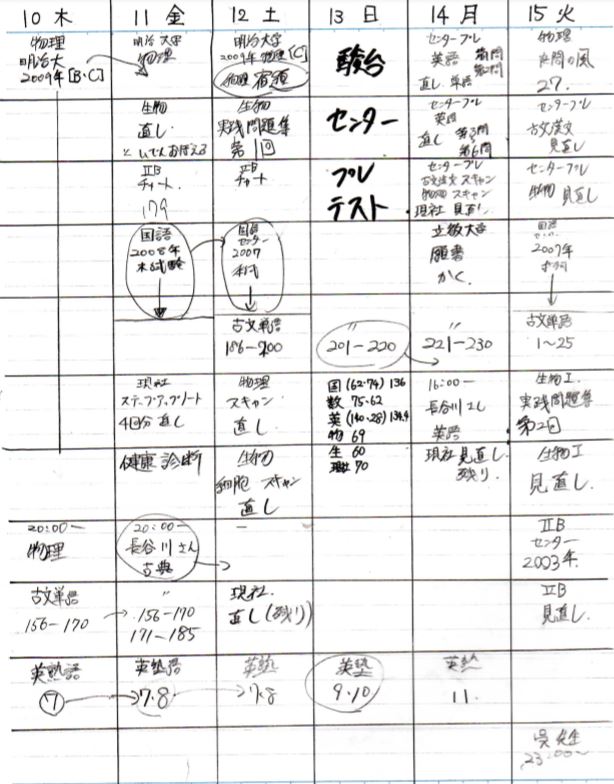 10 木 11 金 12 土 13 日 14 月 15 火
物理
明治大
2009年[B・C]
明治大学
物理
明治大学
2009年 物理[C]
物理
駿台
センタープレ
英語 第1問
第2問
直し 単語
物理
27.
生物
直し
生物
実践問題集
第1回
センター
センタープレ
英語
直し 第3問
第6問
センタープレ
古文漢文
見直し
ⅡB
チャート
179
ⅡB
チャート
プレ
テスト
センタープレ
古文漢文 スキャン
物理 スキャン
現社 見直し
センタープレ
生物 見直し
国語
2008年
本試験
国語
センター
2007
本試
立教大学
願書
かく.
国語
2007年
古文単語
186-200
〃
201-220
〃
221-230
古文単語
1~25
現社
ステップアップノート
4回分 直し
物理
スキャン
直し
国(62・74)136
数 75・62
英(140・28)134.4
物 69
生 60
現社 70
16:00-
長谷川さん
英語
生物Ⅰ.
実践問題集
第2回
健康診断
生物
細胞 スキャン
直し
現社 見直し
残り.
生物Ⅰ
見直し.
20:00-
物理
20:00-
長谷川さん
古典
-
ⅡB
センター
2003年.
古文単語
156-170
〃
156-170
171-185
現社.
直し(残り)
ⅡB
見直し.
英熟語
⑦
英熟語
7.8
英熟
7.8
英熟
9.10
英熟
11.
呉先生
23:00~